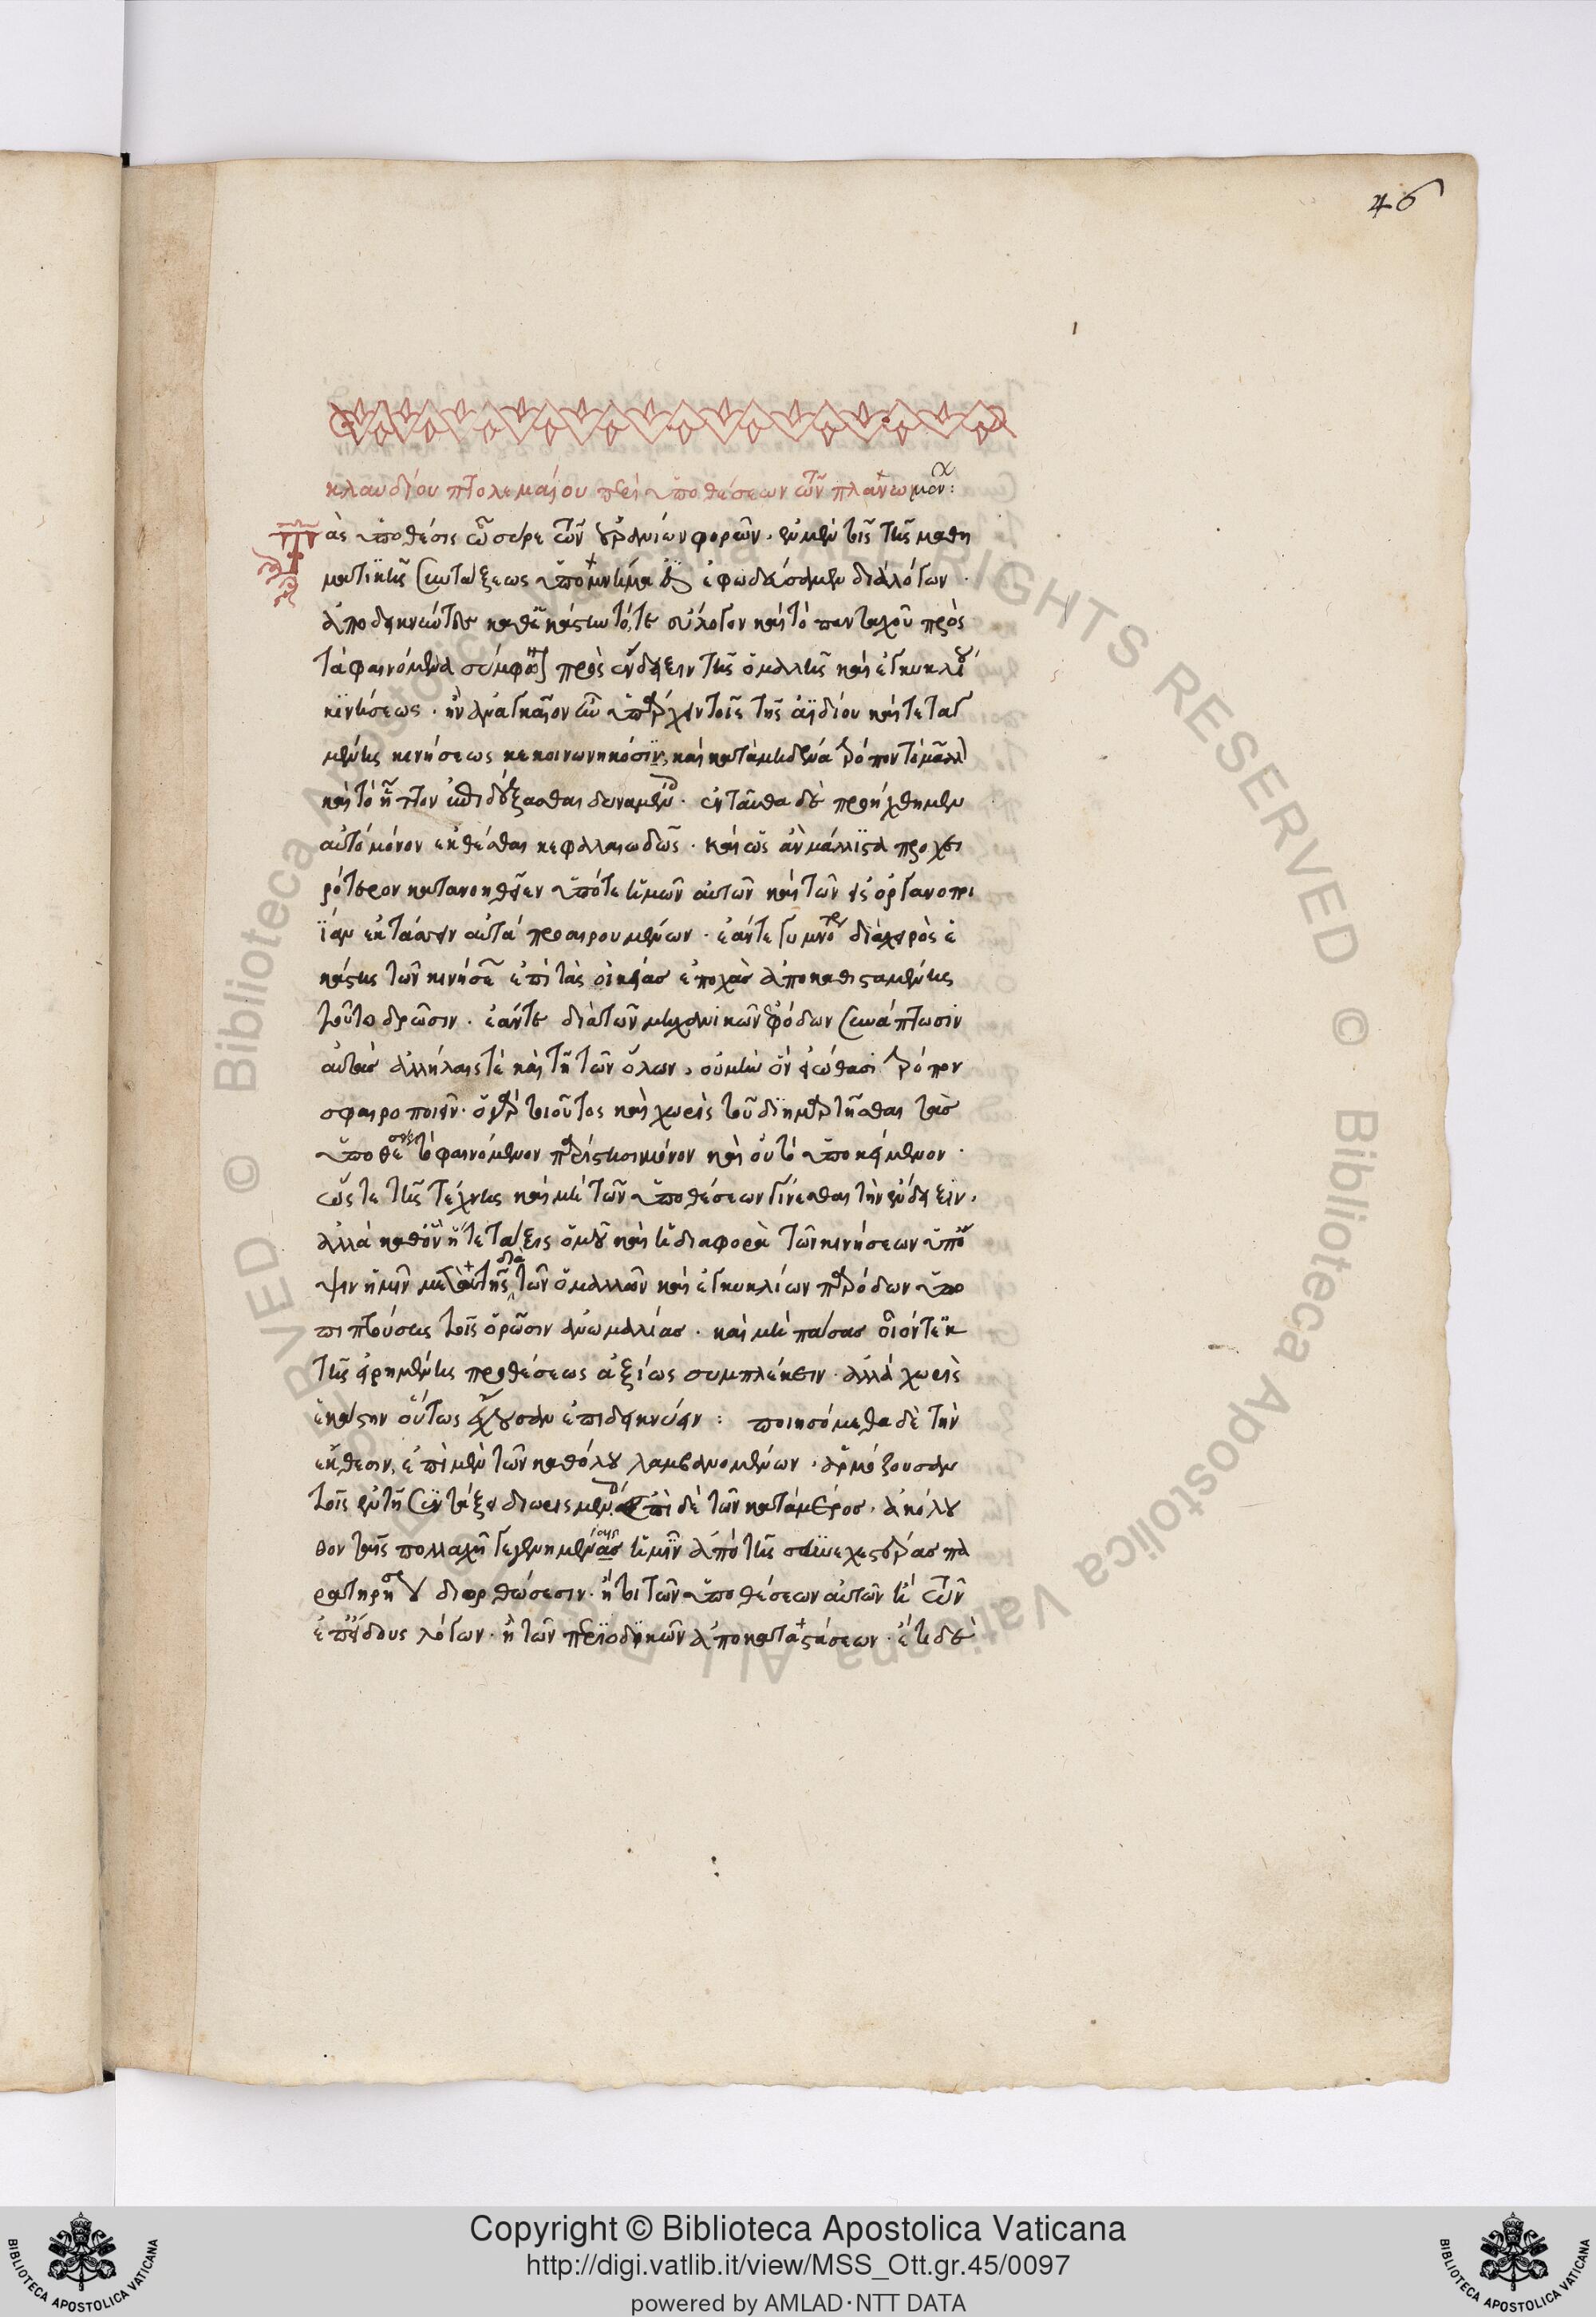 46
κλαυδίου πτολεμαίου περὶ ὑποθέσεων τῶν πλανωμένων:
Τὰς ὑποθέσεις ὦ σύρε τῶν οὐρανίων φορῶν· ἐν μὲν τοῖς τῆς μαθη
ματικῆς συντάξεως ὑπομνήμασιν ἐφωδεύσαμεν διὰ λόγων·
ἀποδεικνύοντες καθ' ἕκάστην τό,τε εὔλογον καὶ τὸ πανταχοῦ πρὸς
τὰ φαινόμενα σύμφωνον πρὸς ἔνδειξιν τῆς ὁμαλῆς καὶ ἐγκυκλίου
κινήσεως· ἣν ἀναγκαῖον ἦν ὑπάρχειν τοῖς τῆς ἀϊδίου καὶ τεταγ
μένης κινήσεως κεκοινωνηκόσιν, καὶ κατὰ μηδένα τρόπον τὸ μᾶλλον
καὶ τὸ ἧττον ἐπιδέξασθαι δυναμένοις· ἐνταῦθα δὲ προήχθημεν
αὐτὸ μόνον ἐκθέσθαι κεφαλαιωδῶς· καὶ ὡς ἂν μάλιστα προχει
ρότερον κατανοηθεῖεν ὑπό τε ἡμῶν αὐτῶν καὶ τῶν εἰς ὀργανοποι
ΐαν ἐκτάσσειν αὐτὰ προαιρουμένων· ἐάν τε γυμνότερον διὰ χειρὸς ἑ
κάστης τῶν κινήσεων ἐπὶ τὰς οἰκείας ἐποχὰς ἀποκαθισταμένης
τοῦτο δρῶσιν· ἐάν τε διὰ τῶν μηχανικῶν ἐφόδων συνάπτωσιν
αὐτὰς ἀλλήλαις τὲ καὶ τῇ τῶν ὅλων, οὐ μὴν ὃν εἰώθασι τρόπον
σφαιροποιεῖν· ὁ γὰρ τοιοῦτος καὶ χωρὶς τοῦ διημαρτῆσθαι τὰς
ὑποθέσεις τὸ φαινόμενον παρίστησι μόνον καὶ οὐ τὸ ὑποκείμενον·
ὥς τε τῆς τέχνης καὶ μὴ τῶν ὑποθέσεων γίνεσθαι τὴν ἔνδειξιν·
ἀλλὰ καθ' ὃν ἥ τε τάξις ὁμοῦ καὶ ἡ διαφορὰ τῶν κινήσεων ὑπ' ὄ
ψιν ἡμῖν μετὰ τῆς διὰ τῶν ὁμαλῶν καὶ ἐγκυκλίων παρόδων ὑπο
πιπτούσης τοῖς ὁρῶσιν ἀνωμαλίας· καὶ μὴ πάσας οἷόν τε ᾖ
τῆς εἰρημένης προθέσεως ἀξίως συμπλέκειν· ἀλλὰ χωρὶς
ἑκάστην οὕτως ἔχουσαν ἐπιδεικνύειν: ποιησόμεθα δὲ τὴν
ἔκθεσιν, ἐπὶ μὲν τῶν καθόλου λαμβανομένων· ἁρμόζουσαν
τοῖς ἐν τῇ συντάξει διωρισμένοις· ἐπὶ δὲ τῶν κατὰ μέρος· ἀκόλου
θον ταῖς πολλαχῇ γεγενημέναις ἡμῖν ἀπὸ τῆς συνεχεστέρας πα
ρατηρήσεως διορθώσεσιν· ἤτοι τῶν ὑποθέσεων αὐτῶν ἢ τῶν
ἐπ' εἴδους λόγων· ἢ τῶν περιοδικῶν ἀποκαταστάσεων· ἔτι δὲ
© Biblioteca Apostolica Vaticana ALL RIGHTS RESERVED
Copyright © Biblioteca Apostolica Vaticana
http://digi.vatlib.it/view/MSS_Ott.gr.45/0097
powered by AMLAD·NTT DATA
BIBLIOTECA APOSTOLICA VATICANA
BIBLIOTECA APOSTOLICA VATICANA